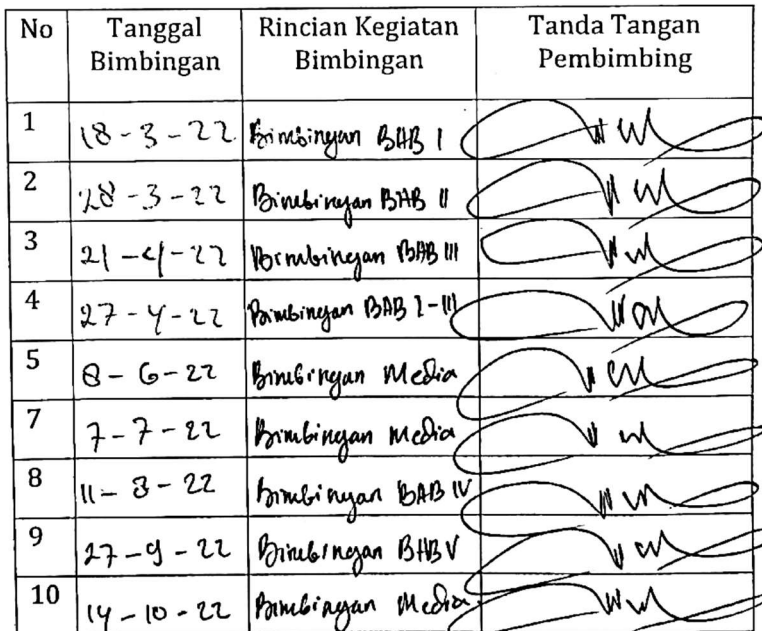 No Tanggal Bimbingan Rincian Kegiatan Bimbingan Tanda Tangan Pembimbing
1 18-3-22 Bimbingan BAB I
2 28-3-22 Bimbingan BAB II
3 21-4-22 Bimbingan BAB III
4 27-4-22 Bimbingan BAB I-III
5 8-6-22 Bimbingan Media
7 7-7-22 Bimbingan Media
8 11-8-22 Bimbingan BAB IV
9 27-9-22 Bimbingan BAB V
10 14-10-22 Bimbingan Media